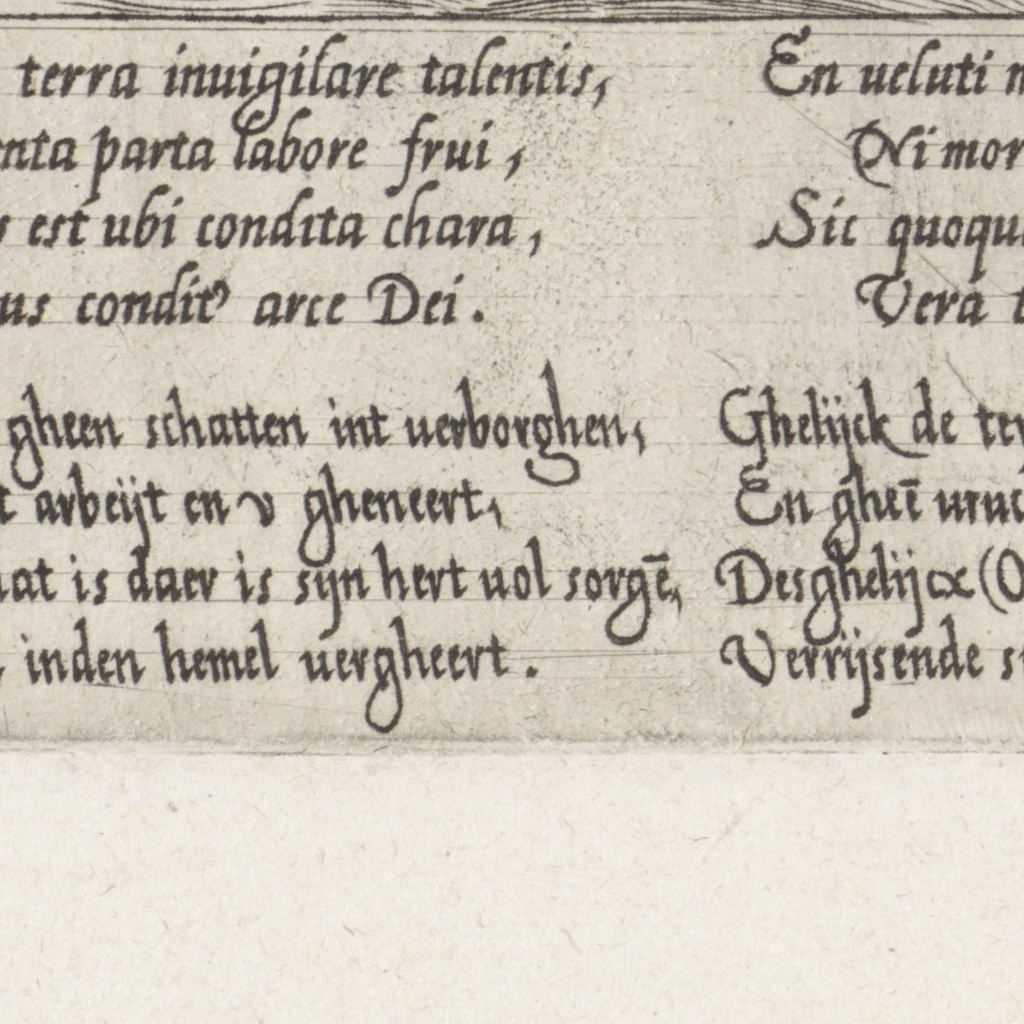 terra inuigilare talentis,
nta parta labore frui,
s est ubi condita chara,
us condit᾽ arce Dei.
gheen schatten int uerborghen,
t arbeijt en v gheneert,
at is daer is sijn hert uol sorgē,
inden hemel uergheert.
En ueluti n
Ni mor
Sic quoqu
Vera t
Ghelijck de ter
En gheē uruc
Desghelijcx (O
Verrijsende s